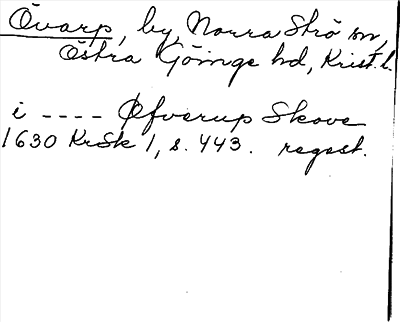 Övarp, by, Norra Strö sn,
Östra Göinge hd, Krist. l.
i ---- Øfverup Skove
1630 KrSk 1, s. 443. regest.